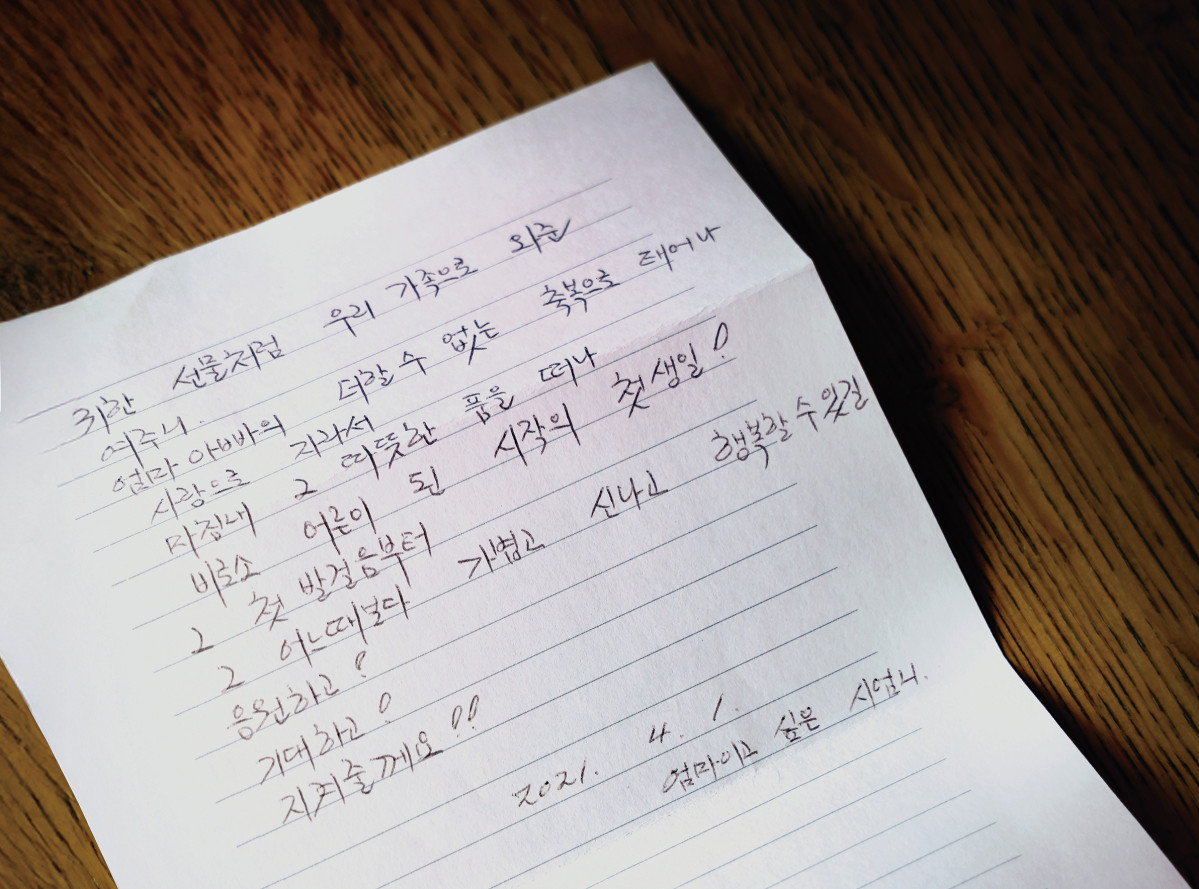 귀한 선물처럼 우리 가족으로 와준
여주니.
엄마 아빠의 더할 수 없는 축복으로 태어나
사랑으로 자라서
마침내 그 따뜻한 품을 떠나
비로소 어른이 된 시작의 첫 생일!
그 첫 발걸음부터
그 어느때보다 가볍고 신나고 행복할 수 있길
응원하고!
기대하고!
지켜줄께요!!
2021. 4. 1.
엄마이고 싶은 시엄니.